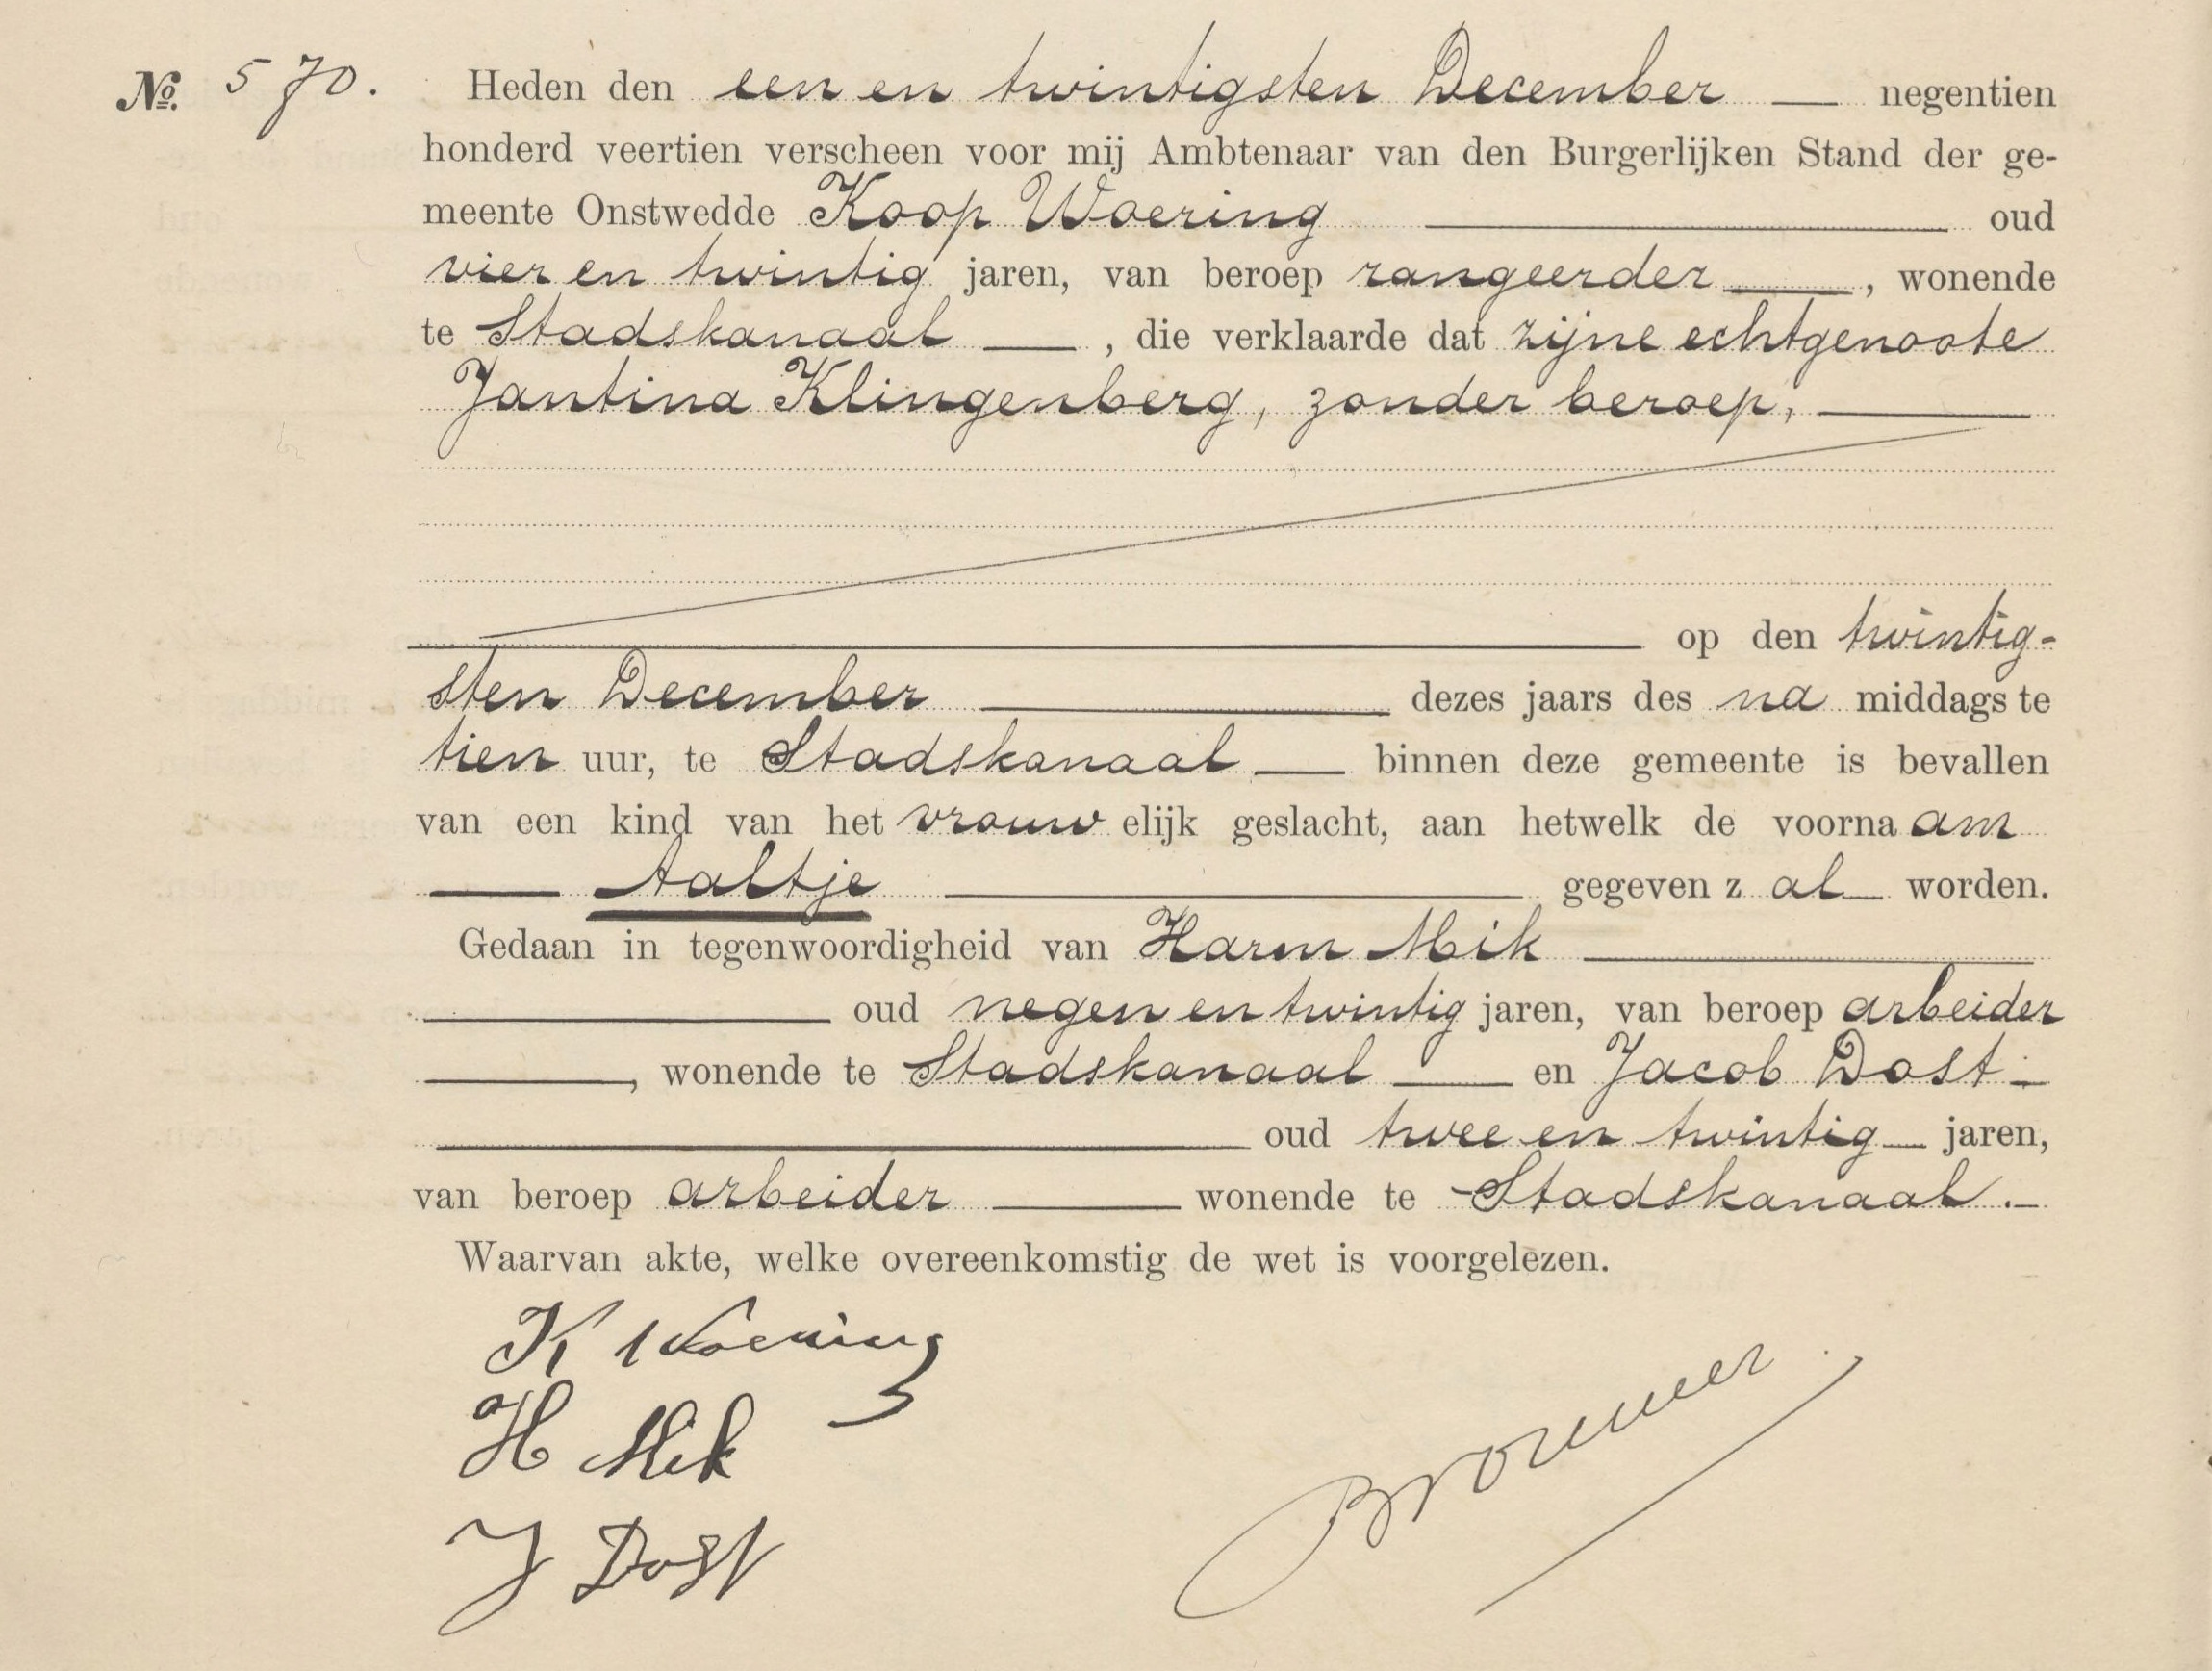 No. 570. Heden den een en twintigsten December — negentien
honderd veertien verscheen voor mij Ambtenaar van den Burgerlijken Stand der ge-
meente Onstwedde Koop Woering — oud
vier en twintig jaren, van beroep rangeerder —, wonende
te Stadskanaal —, die verklaarde dat zijne echtgenoote
Jantina Klingenberg, zonder beroep, —
— op den twintig-
sten December — dezes jaars des na middags te
tien uur, te Stadskanaal — binnen deze gemeente is bevallen
van een kind van het vrouwelijk geslacht, aan hetwelk de voornaam
— Aaltje — gegeven zal — worden.
Gedaan in tegenwoordigheid van Harm Mik —
— oud negen en twintig jaren, van beroep arbeider
—, wonende te Stadskanaal — en Jacob Dost —
— oud twee en twintig — jaren,
van beroep arbeider — wonende te Stadskanaal. —
Waarvan akte, welke overeenkomstig de wet is voorgelezen.
K Woering
H Mik
J Dost
Brouwer